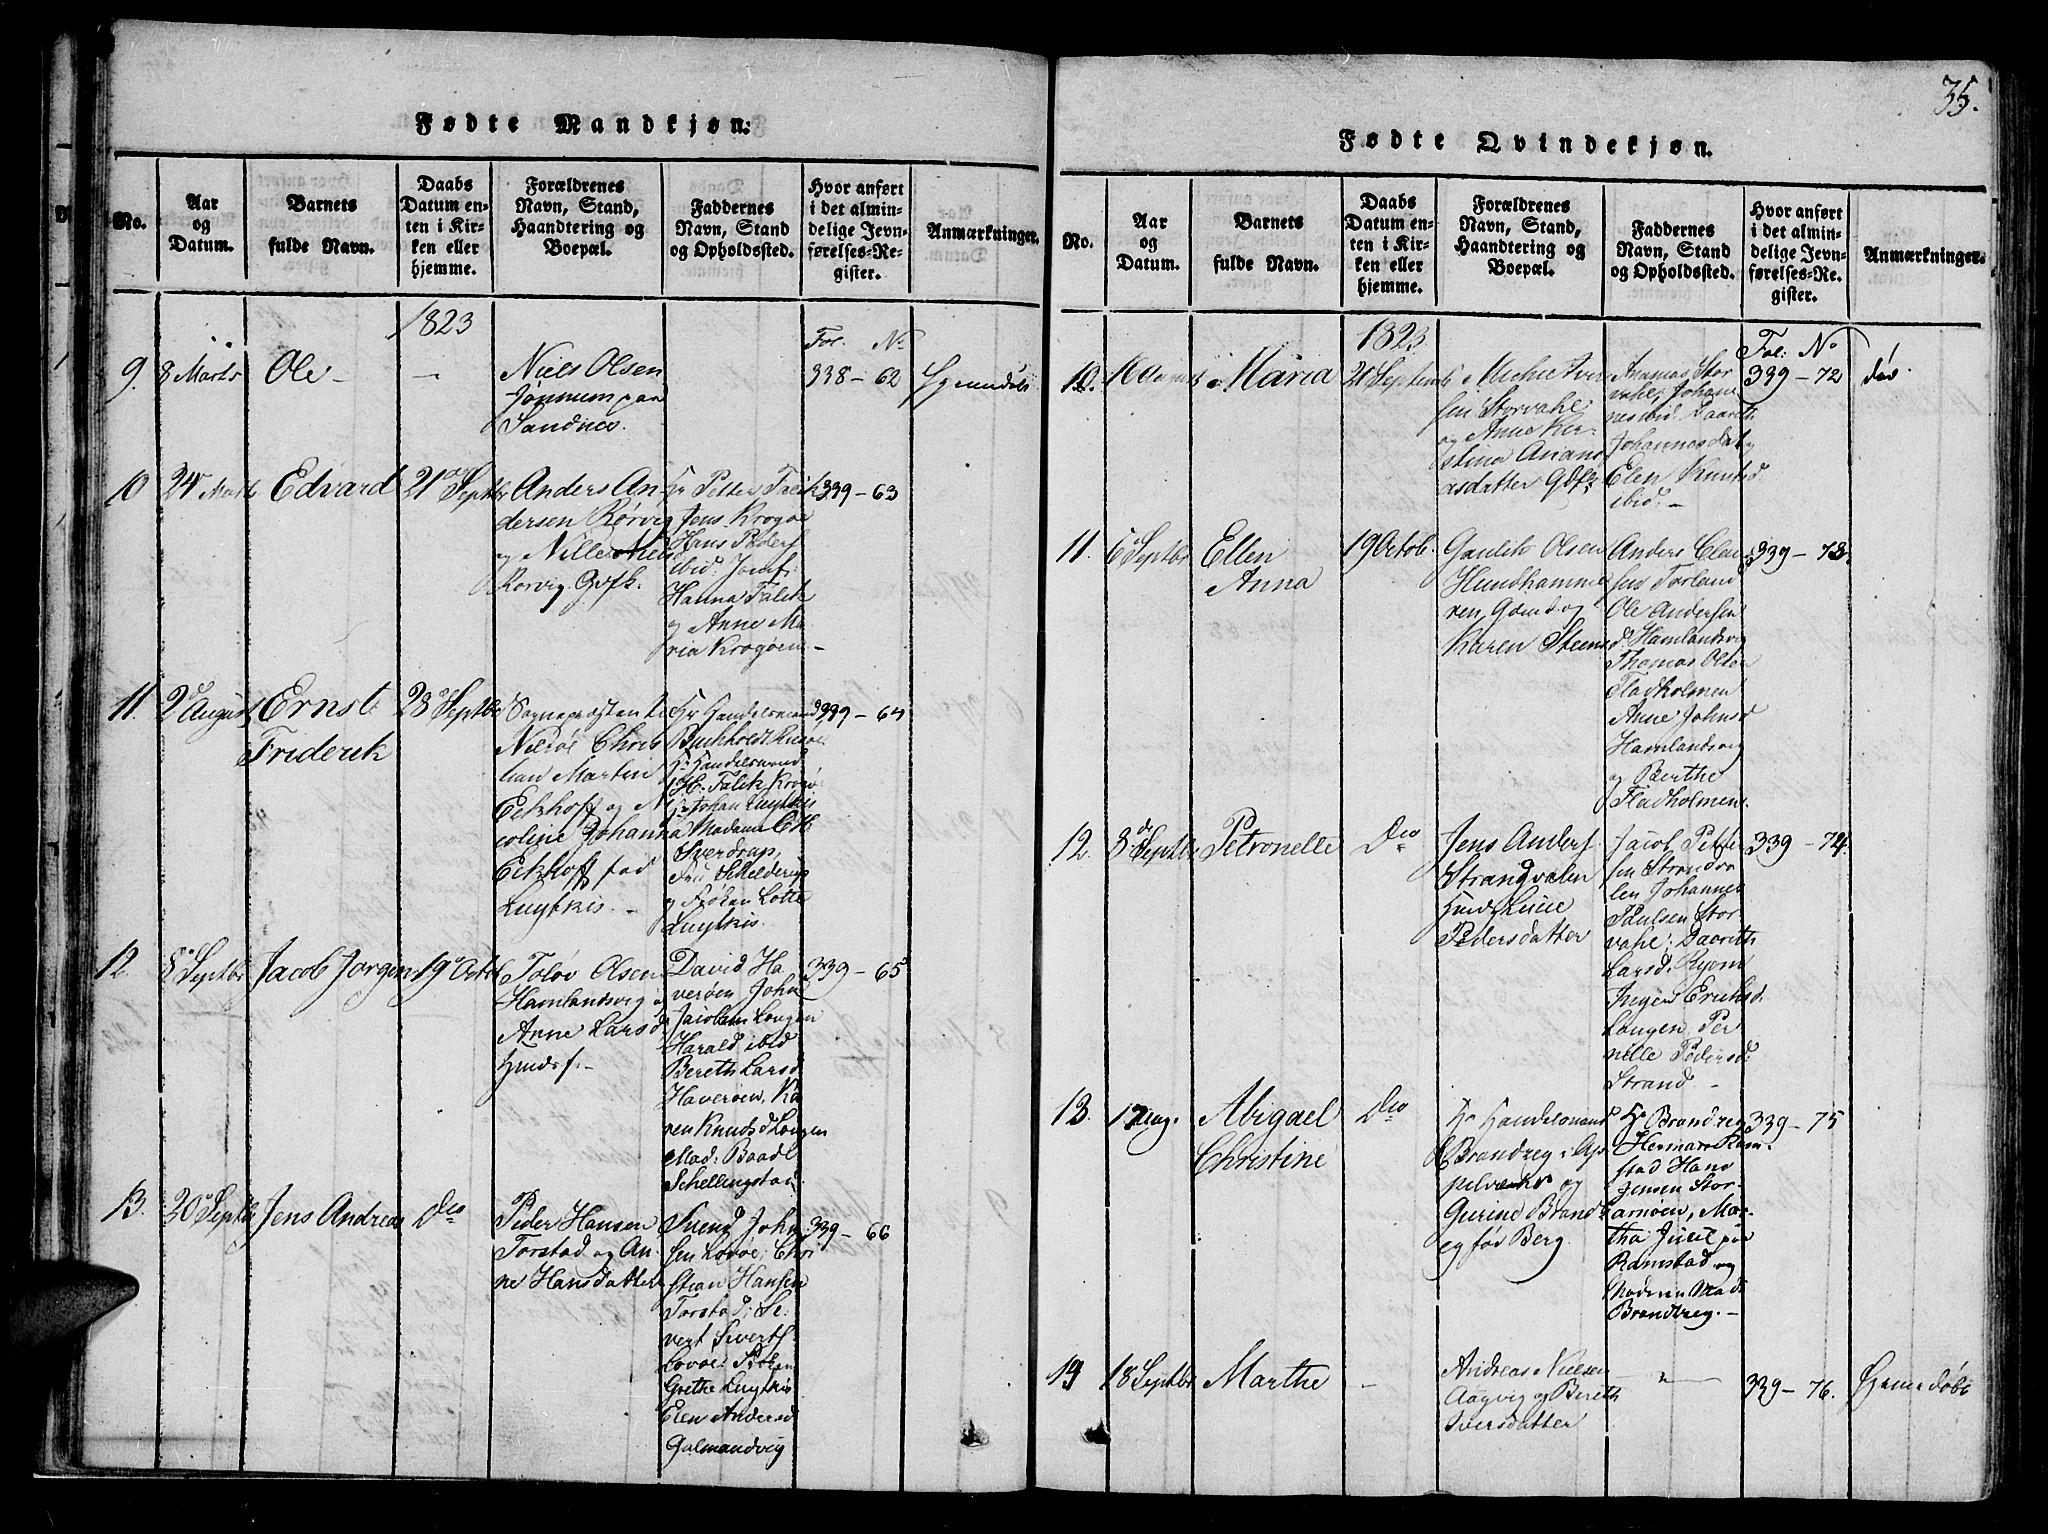 Fødte Mandkjøn.
No.
Aar
og
Datum.
Barnets
fulde Navn.
Daabs
Datum en-
ten i Kir-
ken eller
hjemme.
Forældrenes
Navn, Stand,
Haandtering og
Boepæl.
Faddernes
Navn, Stand
og Opholdssted.
Hvor anført
i det almin-
delige Jevn-
førelses-Re-
gister.
Anmærkninger.
1823
Fol. No
9.
8 Marts
Ole
-
Niels Olsen
paa
Sandnes.
338 - 62
10
24 Marts
Edvard
21 Septbr
Anders An-
dersen Rørvig
og Nille Niels
Rørvig Gvfk.
Hr Petter Falch
Jens Krogøe
Hans Pedersf
ibid: Jomf:
Hanna Falck
og Anne Ma-
ria Krogøen -
339 - 63
11.
2 August
Ernst
Friderik
28 Septbr
Sognepræsten til
Nærøe Chris
tian Martin
Eckhoff og Ni
coline Johanna
Eckhoff fød
Luytkis. -
Hr Handelsmand
Buchholdt
Hr Handelsmand
H. Falck Krogø
Hr Johan Luytkis
Madame
Sverdrup,
Fru Schelderup
og Frøken Lotte
Luytkis.
339 - 64
12.
8 Septbr
Jacob Jørgen
19 Octob
Toløv Olsen
Hamlandsvig og
Anne Larsd
David Ha
verøen John
Jacobsen Longen
Harald ibid
Bereth Larsd
Haverøen, Ka
ren Knudsd Longen
Mad: Baade
Schellingstad.
339 - 65
13.
20 Septbr
Jens Andreas
Do
Peder Hansen
Torstad og An-
ne Hansdatter
Svend John
sen Lovøe; Chri
stian Hansen
Torstad; Se-
vert Sivertf
Lovøe: Frøken
Grethe Luytkis
Elen Andersd
Galmandvig
339 - 66
35.
Fødte Qvindekjøn.
No.
Aar
og
Datum.
Barnets
fulde Navn.
Daabs
Datum en-
ten i Kir-
ken eller
hjemme.
Forældrenes
Navn, Stand,
Haandtering og
Boepæl.
Faddernes
Navn, Stand
og Opholdssted.
Hvor anført
i det almin-
delige Jevn-
førelses-Re-
gister.
Anmærkninger.
1823
Fol: No
10.
16 August
Maria
21 Septemb
Iver
sen Storvahl
og Anne Kir-
stina Anani
asdatter Gdfk:
Ananias Stor
vahl; Johan
nes ibid. Daareth
Johannesdat
Elen Knutsd
ibid: -
339 - 72
død.
11.
6 Septbr
Ellen
Anna
19 Octob.
Gaulith Olsen
Hundhamme
ren, Gdmd. og
Karen Steensd
Anders Clem
sen Torland
Ole Andersen
Hamlandsvig
Thomas Olsen
Fladholmen
Anne Johnsd
Hamlandsvig
og Berthe
Fladholmen.
339 - 73.
12.
8 Septbr
Petronelle
Do
Jens Andersf
Strandvalen
Pedersdatter
Jacob Petter
sen Strandva
len Johannes
Paulsen Stor-
vahl; Daareth
Larsd. Ryem
Inger Erichsd.
Longen, Per
nille Pedersd:
Strand -
339 - 74.
13.
17 Aug.
Abigael
Christine
Do
Hr Handelsmand
Brandzeg i Ap
pelvær og
Gurine Brandz
eg fød Berg.
Hr Brandzeg
Herman Ram-
stad Hans
Jensen Stor-
arnøen, Mar-
tha Juul paa
Ramstad og
Mad:
Brandzeg. -
339 - 75
14
18 Septbr
Marthe
-
Andreas Nielsen
Aagvig og Bereth
Iversdatter
339 - 76.